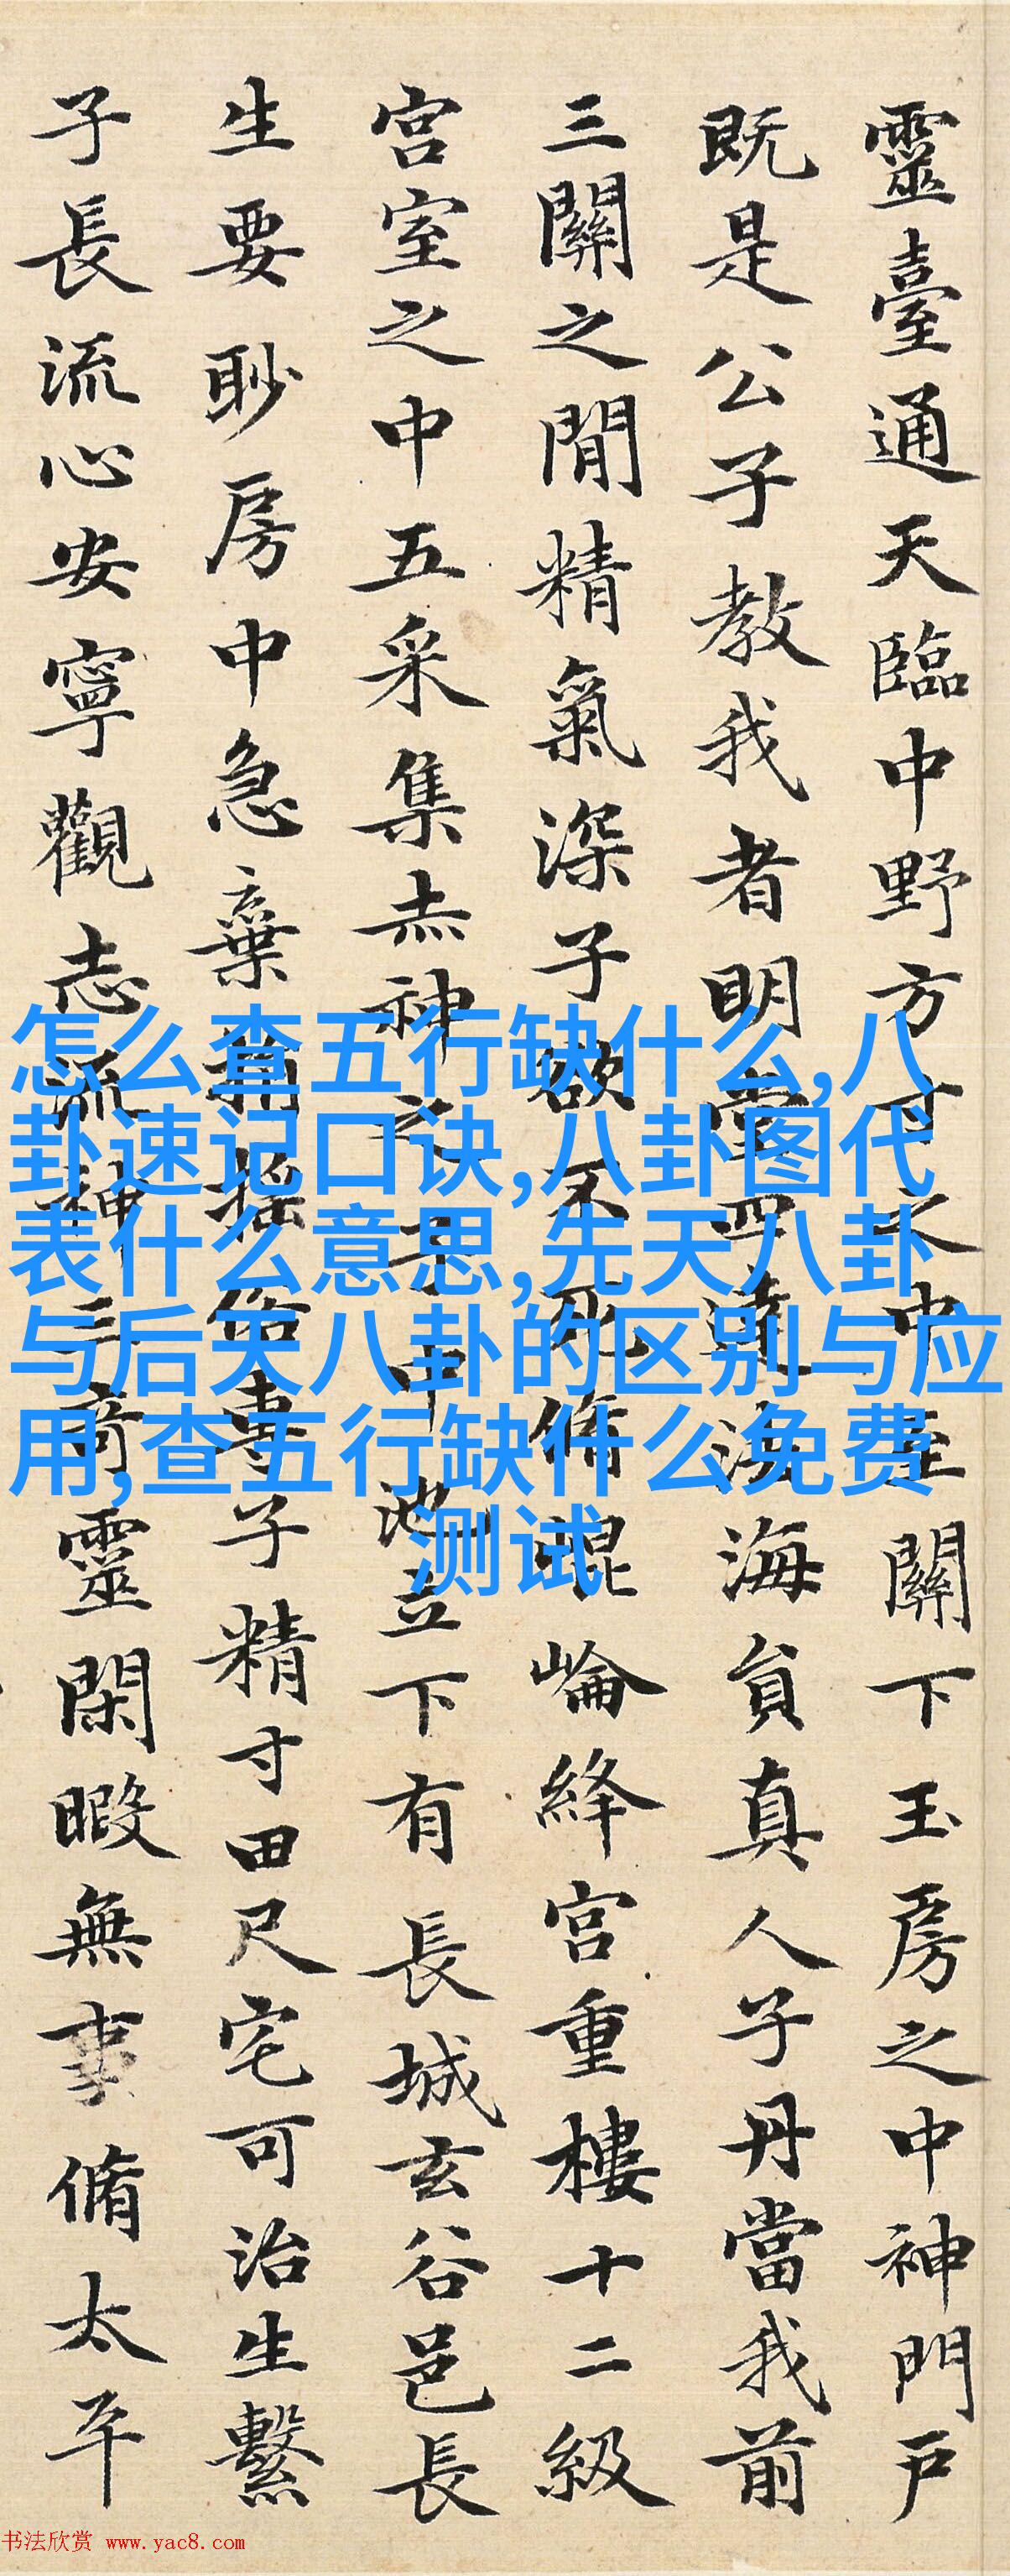 靈臺通天臨中野方寸之中至關下玉房之中神門戶
既是公子教我者明堂四達法海員真人子丹當我前
三關之間精氣深子欲不死脩崐崘絳宮重樓十二級
宮室之中五采集赤神之子中池立下有長城玄谷邑長
生要眇房中急棄捐搖俗專子精寸田尺宅可治生繫
子長流心安寧觀志流神三奇靈閑暇無事脩太平
怎么查五行缺什么,八
卦速记口诀,八卦图代
表什么意思,先天八卦
与后天八卦的区别与应
用,查五行缺什么免费
测试
书法欣赏 www.yac8.com